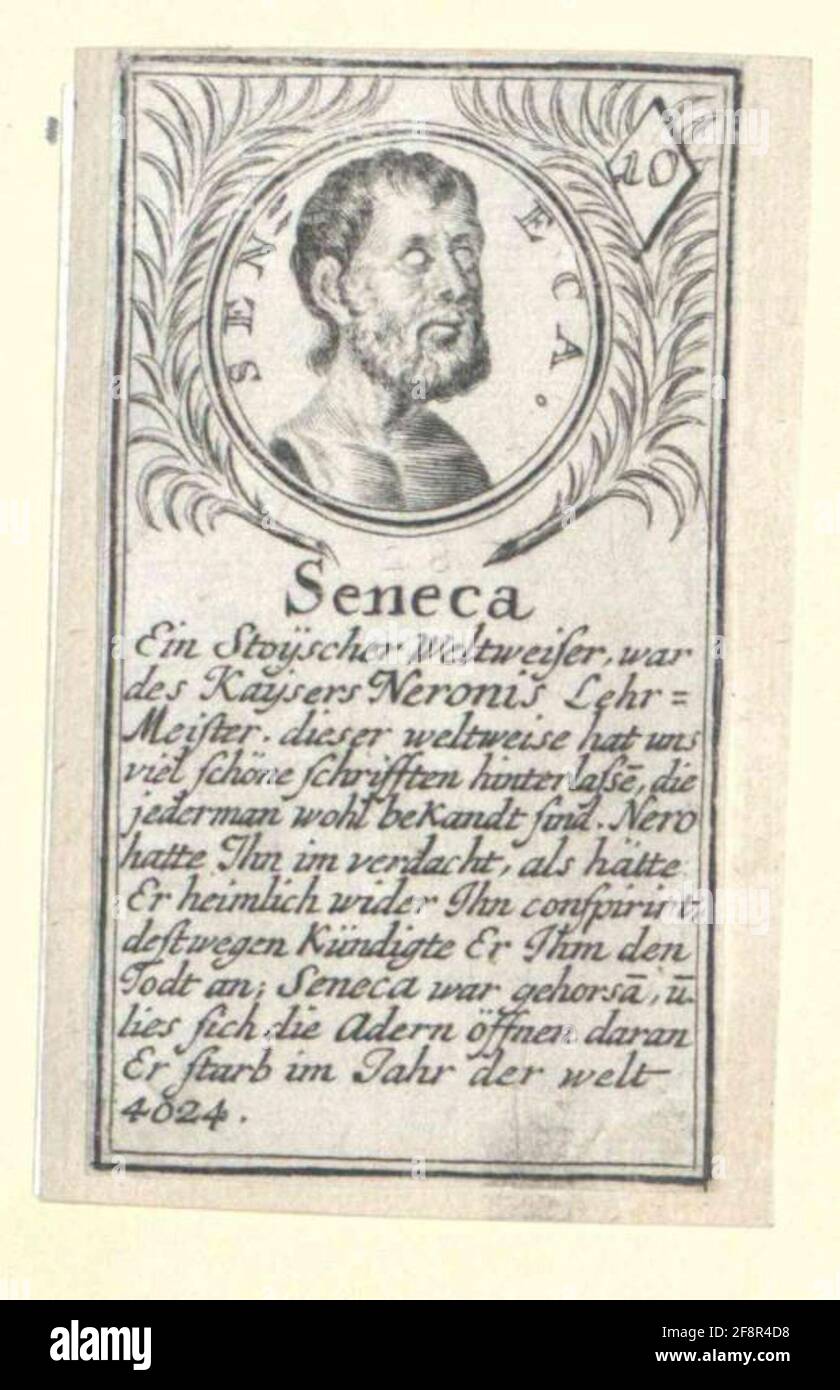 10
SEN=ECA.
Seneca
Ein Stoÿscher Weltweiſer, war
des Kaÿsers Neronis Lehr=
Meiſter. dieser weltweise hat uns
viel ſchöne ſchrifften hinterlaſsē, die
jederman wohl beKandt ſind. Nero
hatte Ihn im verdacht, als hätte
Er heimlich wider Ihn conſpirirt,
deſtwegen Kündigte Er Ihm den
Todt an; Seneca war gehorsā, ū.
lies ſich die Adern öffnen daran
Er ſtarb im Jahr der welt
4024.
alamy
Image ID: 2F8R4D8
www.alamy.com